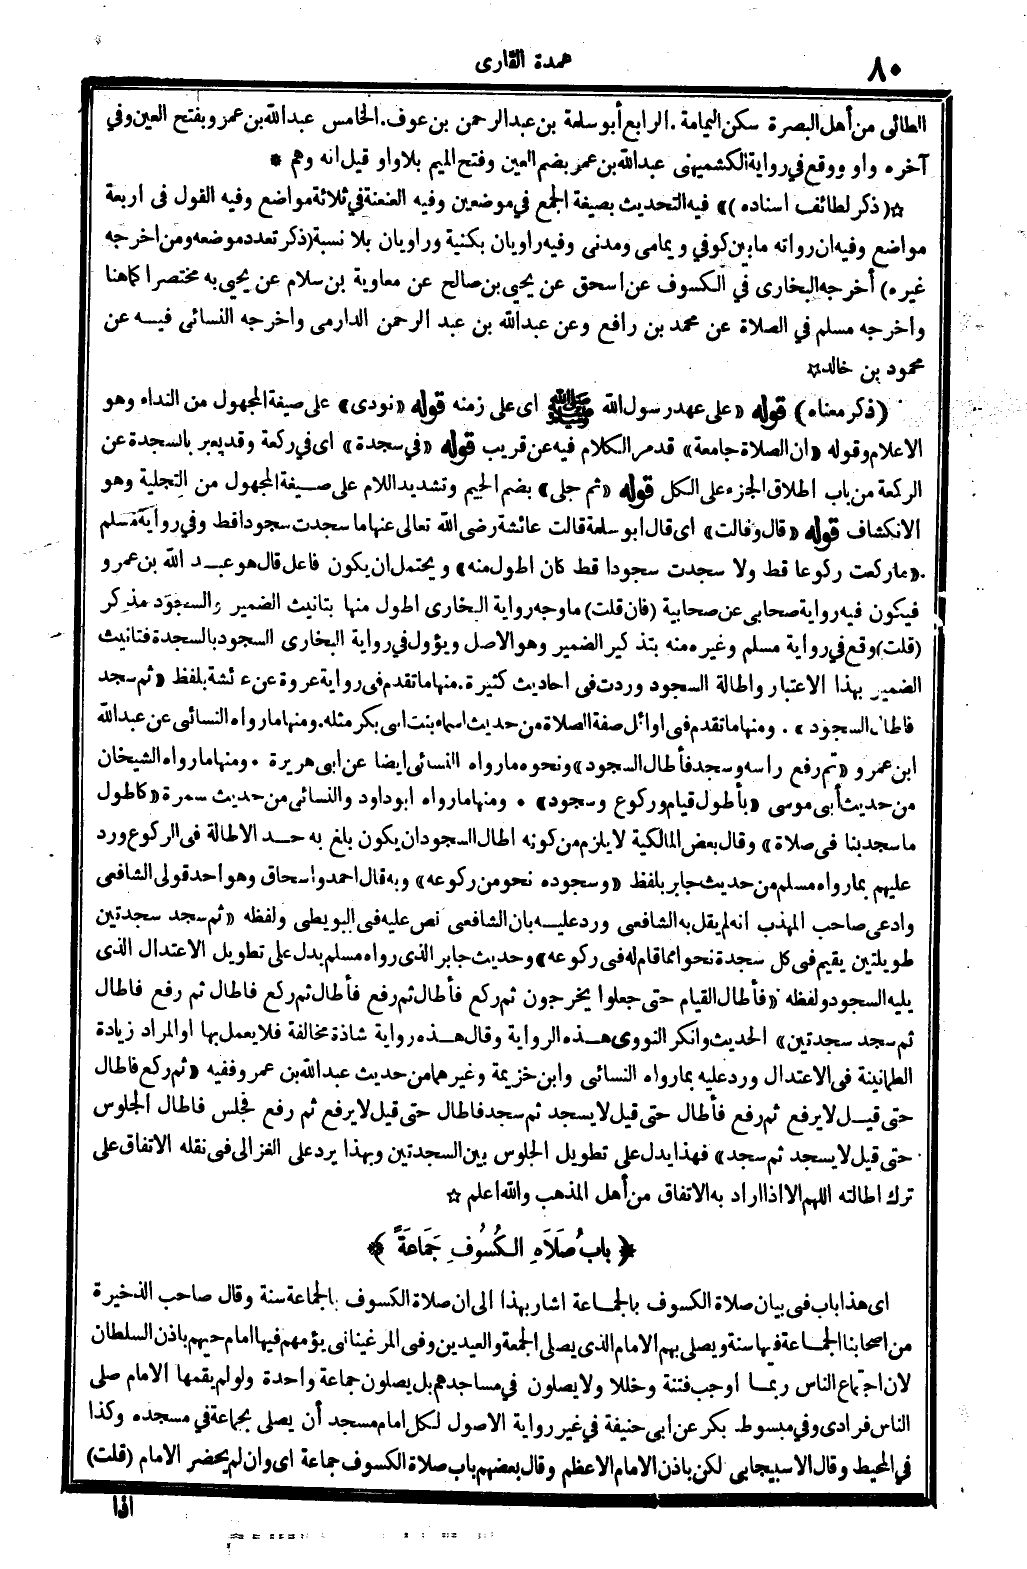 عمدة القارى
٨٠
الطائى من أهل البصرة سكن اليمامة . الرابع أبو سلمة بن عبد الرحمن بن عوف . الخامس عبد الله بن عمرو بفتح العين وفي
آخره واو ووقع في رواية الكشميهنى عبد الله بن عمر بضم العين وفتح الميم بلا واو قيل انه وهم *
☆( ذكر لطائف اسناده )» فيه التحديث بصيغة الجمع في موضعين وفيه العنعنة في ثلاثة مواضع وفيه القول فى اربعة
مواضع وفيه ان رواته ما بين كوفي و يمامى ومدنى وفيه راويان بكنية وراويان بلا نسبة (ذكر تعدد موضعه ومن اخرجه
غيره) أخرجه البخارى في الكسوف عن اسحق عن يحيى بن صالح عن معاوية بن سلام عن يحيى به مختصرا كما هنا
واخرجه مسلم في الصلاة عن محمد بن رافع وعن عبد الله بن عبد الرحمن الدارمى واخرجه النسائى فيه عن
محمود بن خالد☆
(ذكر معناه) قوله «على عهد رسول الله ﷺ اى على زمنه قوله «نودى» على صيغة المجهول من النداء وهو
الاعلام وقوله «ان الصلاة جامعة» قد مر الكلام فيه عن قريب قوله «في سجدة» اى فى ركعة وقد يعبر بالسجدة عن
الركعة من باب اطلاق الجزء على الكل قوله «ثم جلى» بضم الجيم وتشديد اللام على صيغة المجهول من التجلية وهو
الانكشاف قوله «قال وقالت» اى قال ابو سلمة قالت عائشة رضى الله تعالى عنها ما سجدت سجودا قط وفي رواية مسلم
«ما ركعت ركوعا قط ولا سجدت سجودا قط كان اطول منه» و يحتمل ان يكون فاعل قال هو عبد الله بن عمرو
فيكون فيه رواية صحابى عن صحابية (فان قلت) ما وجه رواية البخارى اطول منها بتانيث الضمير والسجود مذكر
(قلت) وقع في رواية مسلم وغيره منه بتذكير الضمير وهو الاصل ويؤول في رواية البخارى السجود بالسجدة فتانيث
الضمير بهذا الاعتبار واطالة السجود وردت فى احاديث كثيرة . منها ما تقدم فى رواية عروة عن عائشة بلفظ «ثم سجد
فاطال السجود » . ومنها ما تقدم فى اوائل صفة الصلاة من حديث اسماء بنت ابى بكر مثله . ومنها ما رواه النسائى عن عبد الله
ابن عمرو «ثم رفع راسه وسجد فأطال السجود» ونحوه ما رواه النسائى ايضا عن ابى هريرة . ومنها ما رواه الشيخان
من حديث أبى موسى «بأطول قيام وركوع وسجود» . ومنها ما رواه ابو داود والنسائى من حديث سمرة «كاطول
ما سجد بنا فى صلاة» وقال بعض المالكية لا يلزم من كونه اطال السجود ان يكون بلغ به حد الاطالة فى الركوع ورد
عليهم بما رواه مسلم من حديث جابر بلفظ «وسجوده نحو من ركوعه» وبه قال احمد واسحاق وهو احد قولى الشافعى
وادعى صاحب المهذب انه لم يقل به الشافعى ورد عليه بان الشافعى نص عليه فى البويطى ولفظه «ثم سجد سجدتين
طويلتين يقيم فى كل سجدة نحوا مما قام له فى ركوعه» وحديث جابر الذى رواه مسلم يدل على تطويل الاعتدال الذى
يليه السجود ولفظه «فأطال القيام حتى جعلوا يخرجون ثم ركع فأطال ثم رفع فأطال ثم ركع فاطال ثم رفع فاطال
ثم سجد سجدتين» الحديث وانكر النووى هذه الرواية وقال هذه رواية شاذة مخالفة فلا يعمل بها او المراد زيادة
الطمانينة فى الاعتدال ورد عليه بما رواه النسائى وابن خزيمة وغيرهما من حديث عبد الله بن عمرو ففيه «ثم ركع فاطال
حتى قيل لا يرفع ثم رفع فأطال حتى قيل لا يسجد ثم سجد فاطال حتى قيل لا يرفع ثم رفع فجلس فاطال الجلوس
حتى قيل لا يسجد ثم سجد» فهذا يدل على تطويل الجلوس بين السجدتين وبهذا يرد على الغزالى فى نقله الاتفاق على
ترك اطالته اللهم الا اذا اراد به الاتفاق من أهل المذهب والله اعلم ☆
﴿ بابُ صَلَاةِ الكُسُوفِ جَمَاعَةً ﴾
اى هذا باب فى بيان صلاة الكسوف بالجماعة اشار بهذا الى ان صلاة الكسوف بالجماعة سنة وقال صاحب الذخيرة
من اصحابنا الجماعة فيها سنة ويصلى بهم الامام الذى يصلى الجمعة والعيدين وفى المرغينانى يؤمهم فيها امام حيهم باذن السلطان
لان اجتماع الناس ربما اوجب فتنة وخللا ولا يصلون في مساجدهم بل يصلون جماعة واحدة ولو لم يقمها الامام صلى
الناس فرادى وفي مبسوط بكر عن ابى حنيفة في غير رواية الاصول لكل امام مسجد أن يصلى بجماعة في مسجده وكذا
في المحيط وقال الاسبيجابى لكن باذن الامام الاعظم وقال بعضهم باب صلاة الكسوف جماعة اى وان لم يحضر الامام (قلت)
اذا